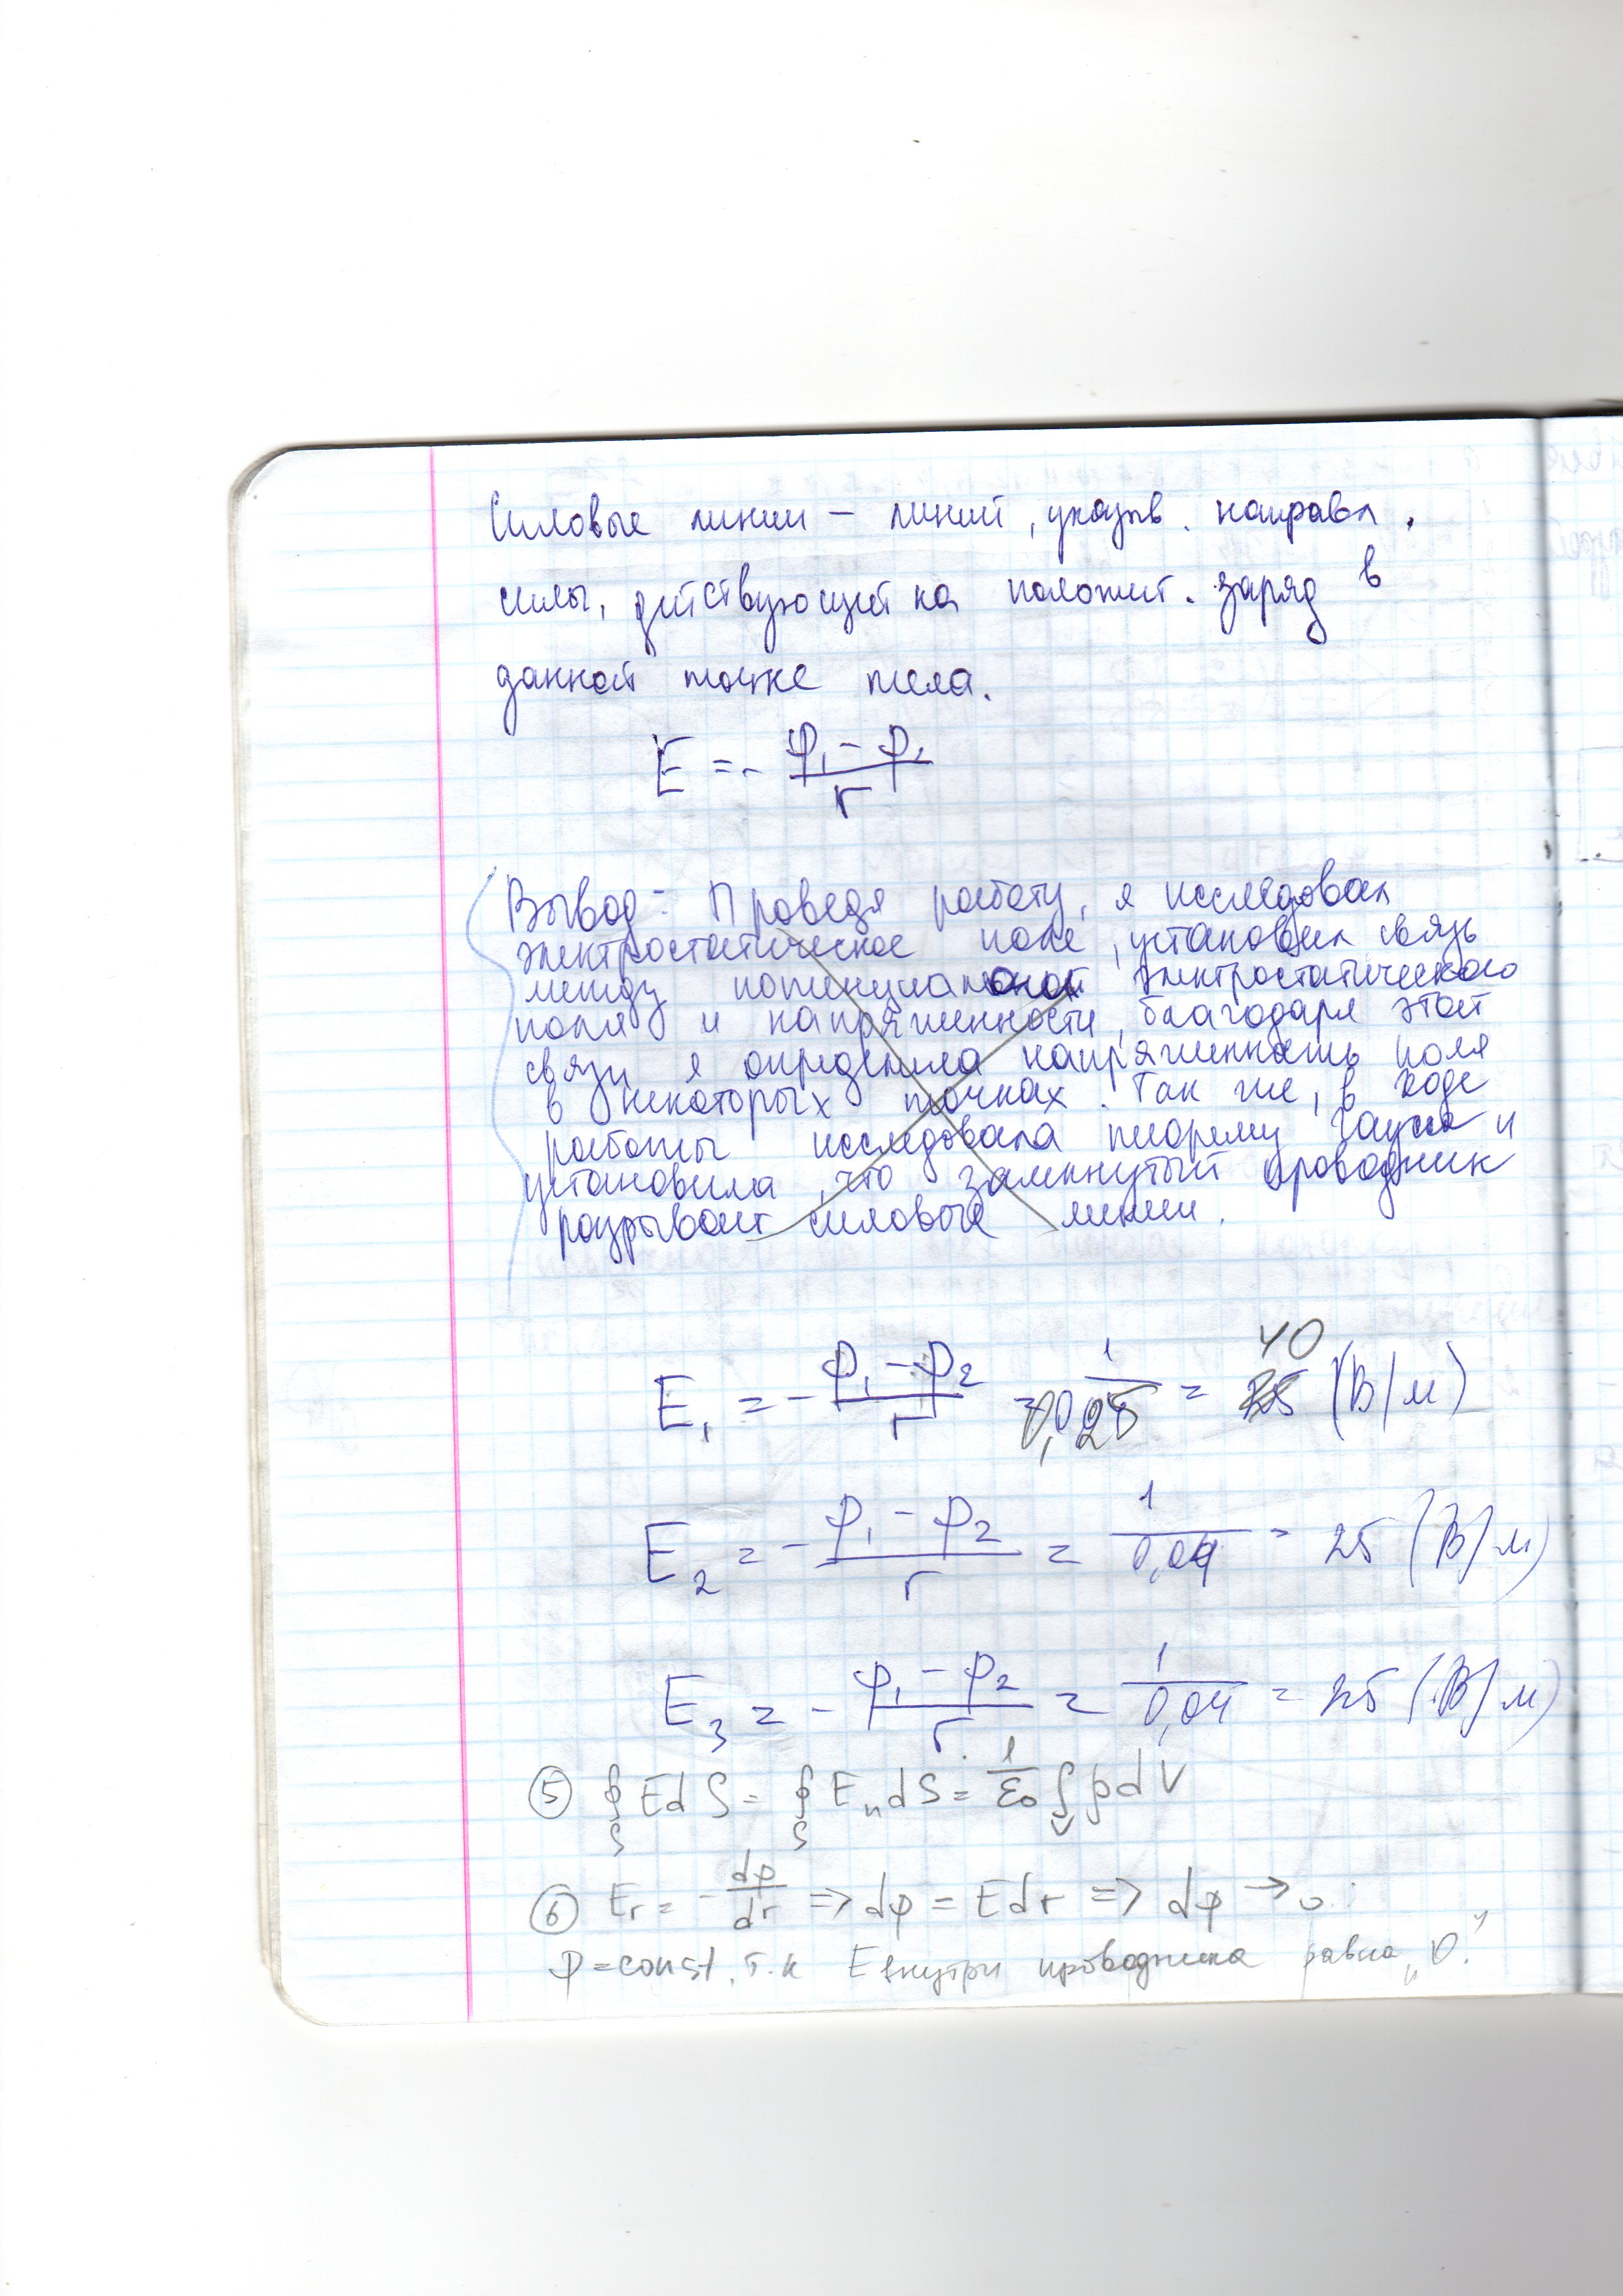 Силовые линии – линий, указыв. направл.
силы, действующей на положит. заряд в
данной точке тела.
E = - φ₁ - φ₂ / r
Вывод: Проведя работу, я исследовал
электростатическое поле, установил связь
между потенциалоной электростатического
поля и напряженности, благодаря этой
связи я определила напряженность поля
в некоторых точках. Так же, в ходе
работы исследовала теорему Гаусса и
установила, что замкнутый проводник
разрывает силовые линии.
E₁ = - φ₁ - φ₂ / r = 1 / 0,025 = 40 (В/м)
E₂ = - φ₁ - φ₂ / r = 1 / 0,04 = 25 (В/м)
E₃ = - φ₁ - φ₂ / r = 1 / 0,04 = 25 (В/м)
⑤ ∮S EdS = ∮S EndS = 1/ε₀ ∫V ρdV
⑥ Er = - dφ/dr => dφ = Edr => dφ → 0
φ = const, т.к E внутри проводника равна „0."